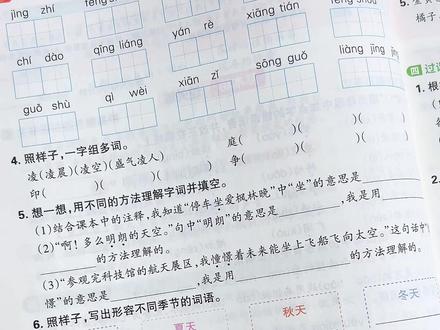 jìng zhí
chí dào qīng liáng yán rè xiāng tián
guǒ shù qì wèi xiān zǐ sōng guǒ liàng jīng jīng
5.
橘子
四
1. 根
4. 照样子,一字组多词。
凌(凌晨)(凌空)(盛气凌人) 庭( )( )(
印( )( )( ) 争( )( )(
5. 想一想,用不同的方法理解字词并填空。
(1)结合课本中的注释,我知道“停车坐爱枫林晚”中“坐”的意思是
(2)“啊!多么明朗的天空。”句中“明朗”的意思是 ,我是用
的方法理解的。
(3)“参观完科技馆的航天展区,我憧憬着未来能坐上飞船飞向太空。”这句话中
憬”的意思是 ,我是用 的方法理解的。
6. 照样子,写出形容不同季节的词语。
夏天 秋天 冬天